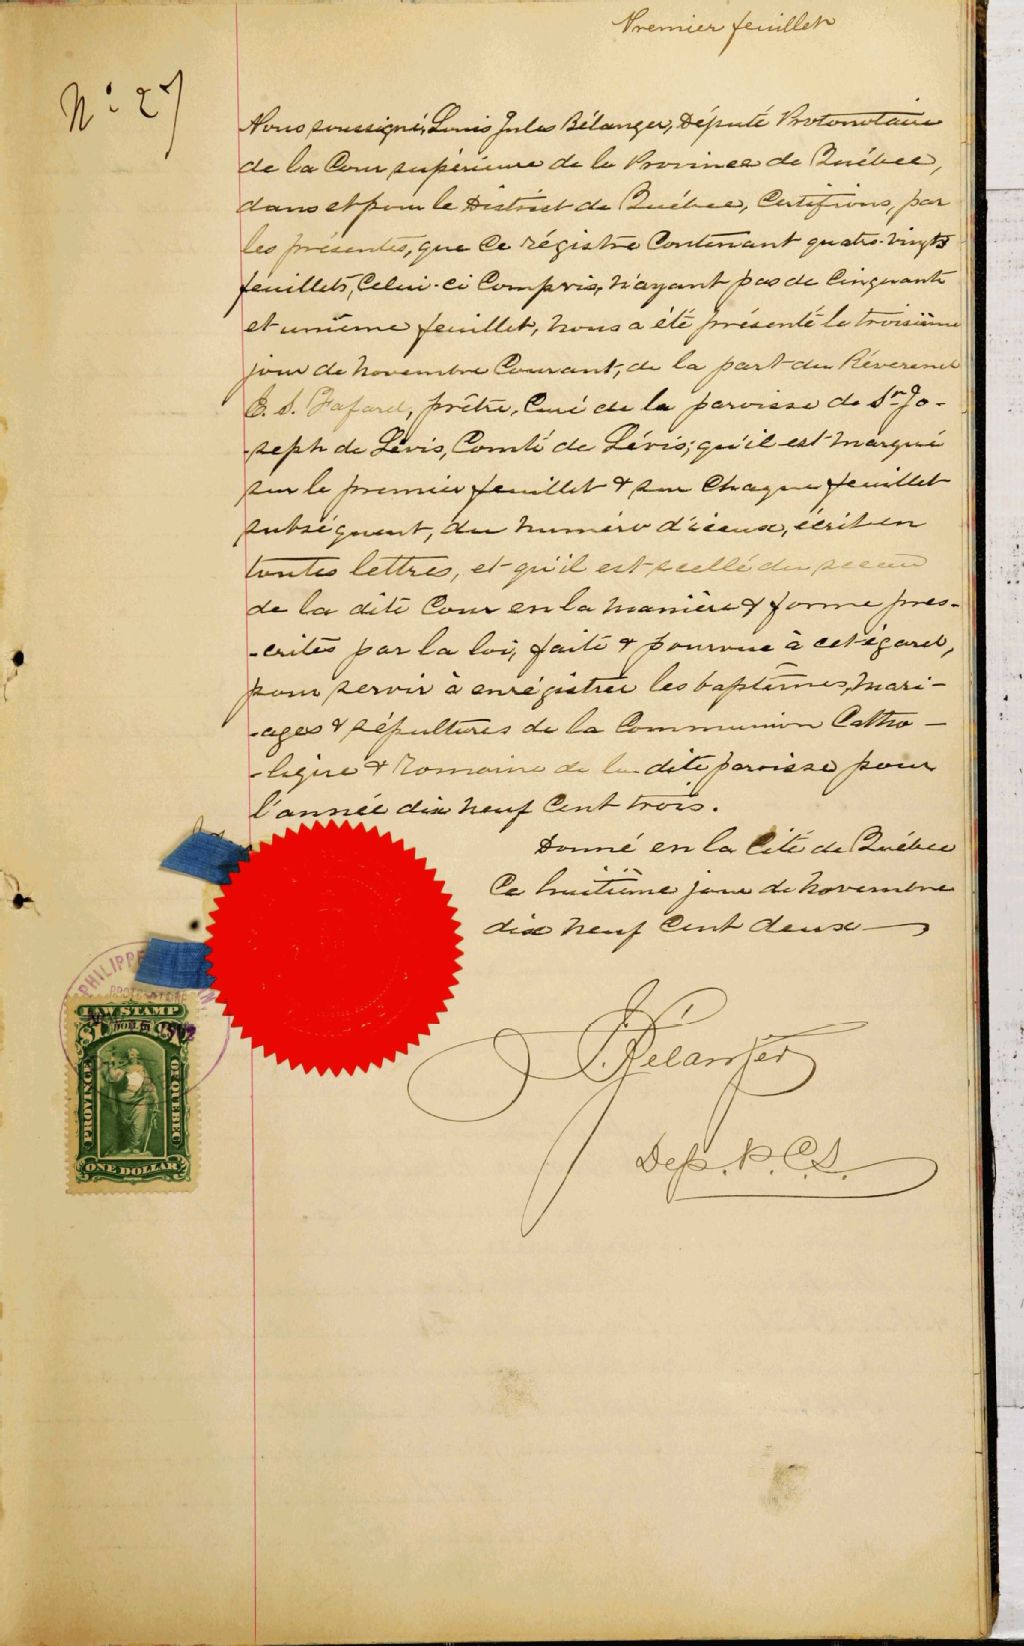 Premier feuillet
No 27
Nous soussigné, Louis Jules Bélanger, Député Protonotaire
de la Cour supérieure de la Province de Québec,
dans et pour le District de Québec, Certifions, par
les présentes, que ce régistre contenant quatre-vingts
feuillets, celui-ci compris, n'ayant pas de cinquante
et unième feuillet, nous a été présenté le troisième
jour de novembre courant, de la part du Réverend
E. S. Fafard, prêtre, Curé de la paroisse de St Jo-
-seph de Lévis, Comté de Lévis; qu'il est marqué
sur le premier feuillet & sur chaque feuillet
subséquent, du numéro d'iceux, écrit en
toutes lettres, et qu'il est scellé du sceau
de la dite Cour en la manière & forme pres-
-crites par la loi, faite & pourvue à cet égard,
pour servir à enrégistrer les baptêmes, mari-
-ages & sépultures de la Communion Catho-
-lique & romaine de la dite paroisse pour
l'année dix neuf cent trois.
Donné en la Cité de Québec
ce huitième jour de novembre
dix neuf cent deux
J. Bélanger
Dep. P. C. S.
PHILIPPE
PROTONOTAIRE
LAW STAMP
$1 $1
1902
PROVINCE OF QUEBEC
ONE DOLLAR